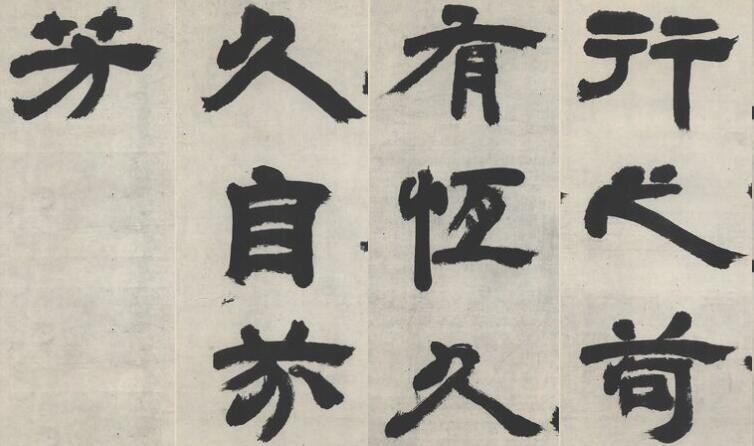 行之苟
有恆久
久自芬
芳